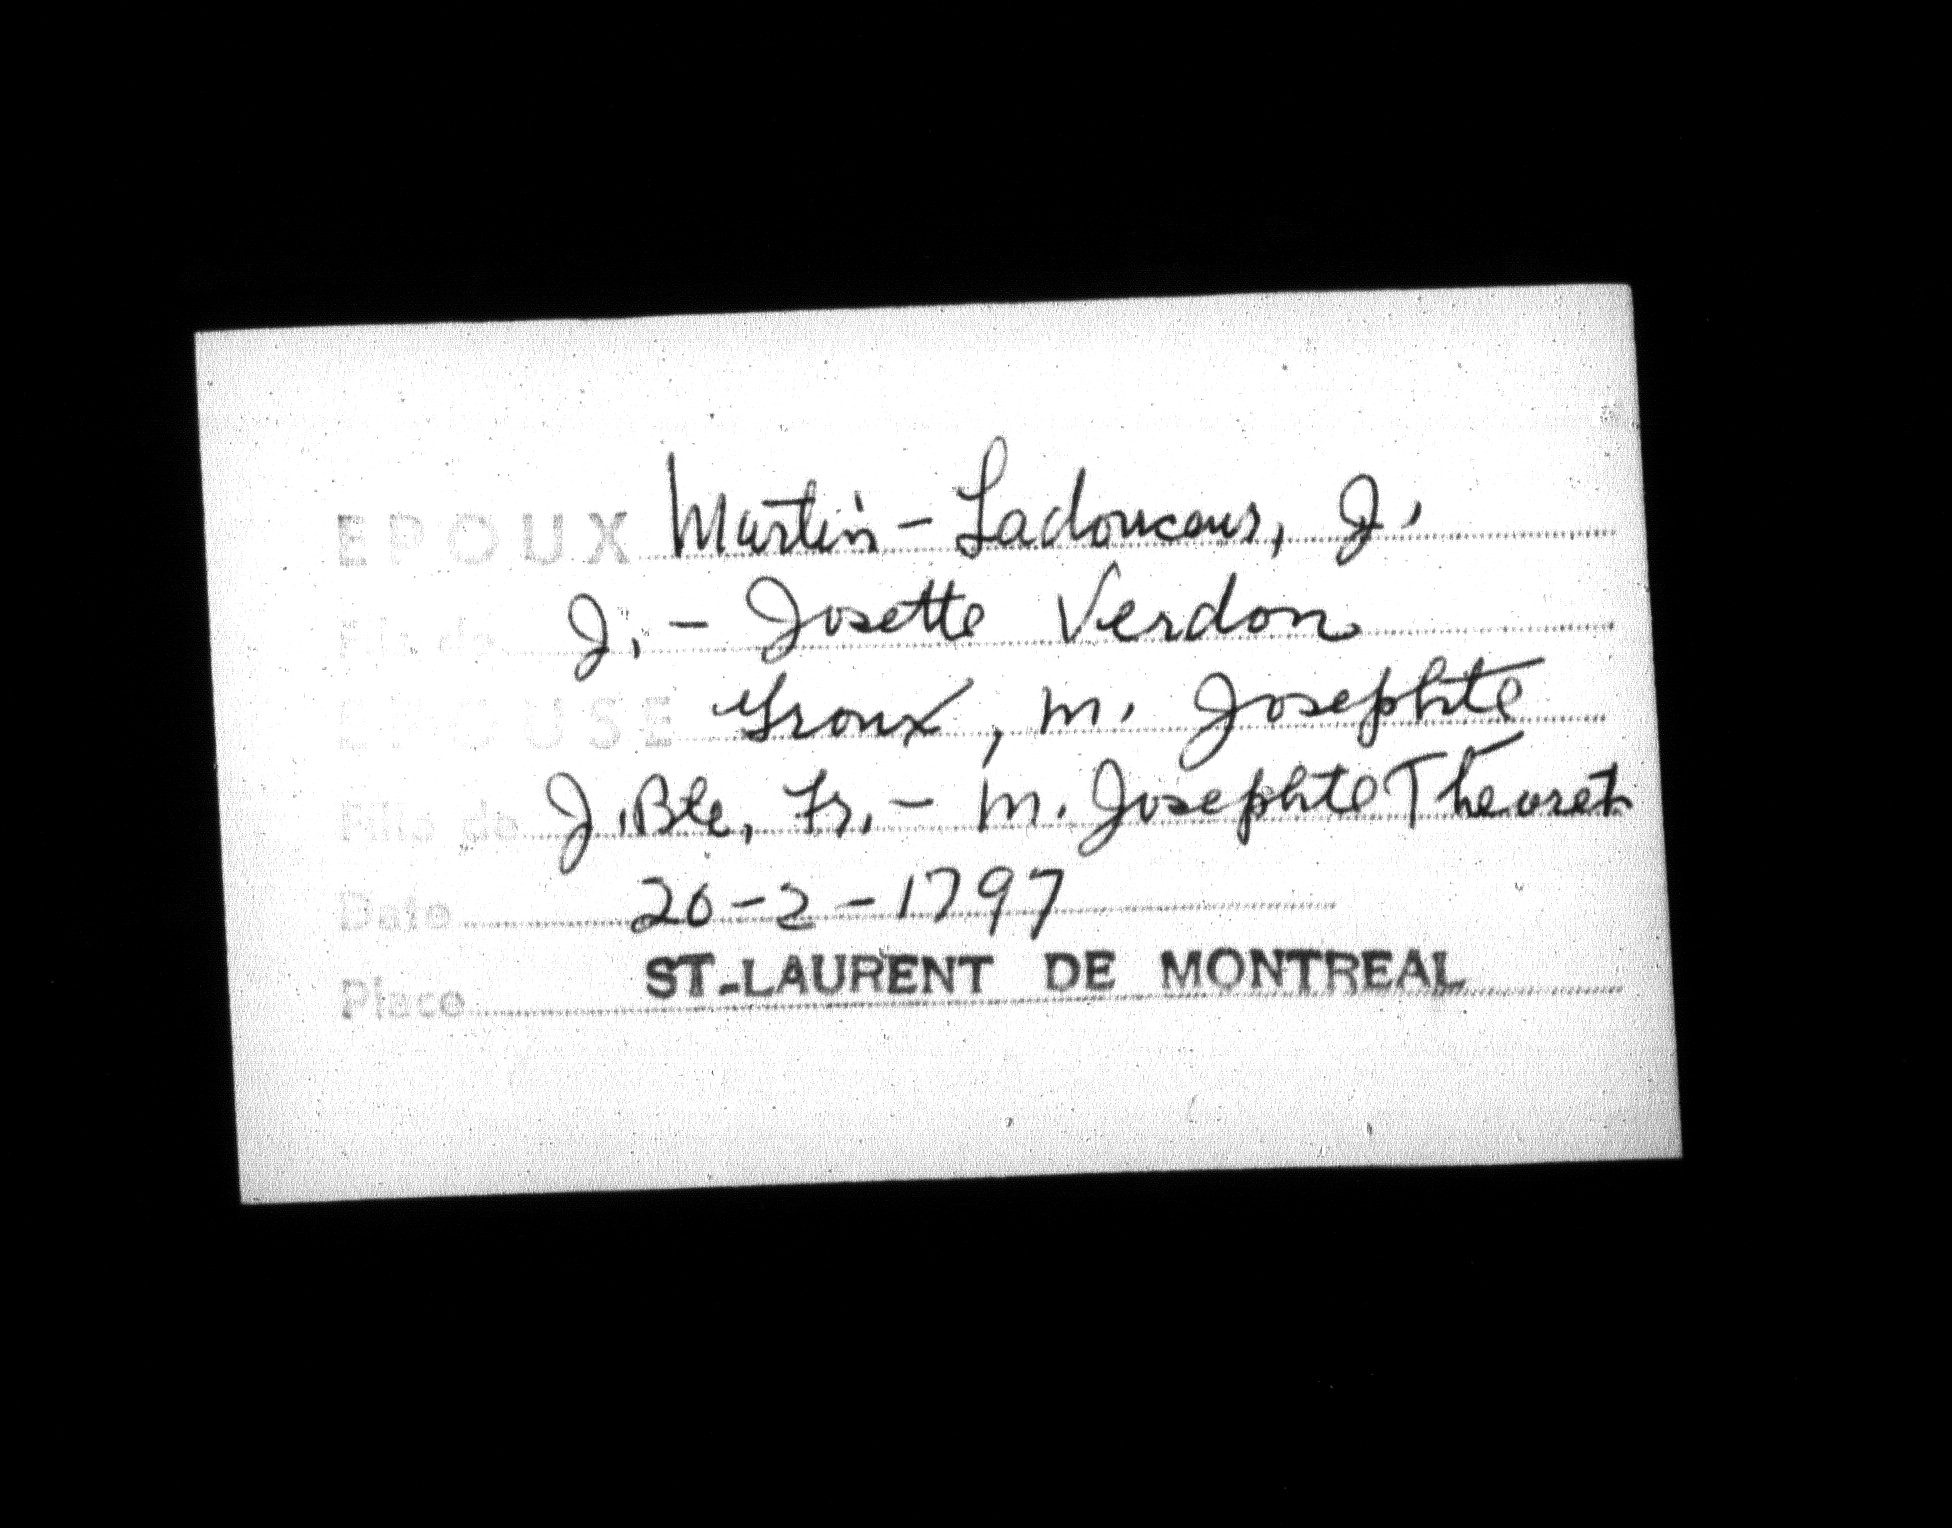 EPOUX Martin-Ladouceur, J.
Fils de J. - Josette Verdon
EPOUSE Groux, m. Josephte
Fille de J. Bte, Fr. - m. Josephte Theoret
Date 20-2-1797
Place ST-LAURENT DE MONTREAL